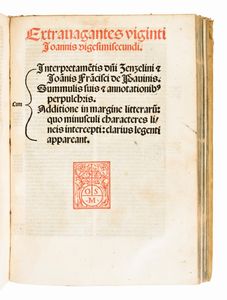 Extrauagantes viginti
Joannis vigesimisecundi.
Interpretamẽtis dñi Zenzelini &
Joãnis Frãcisci de Pauinis.
Summulis suis & annotationib9
perpulchris.
Cum
Additione in margine litterarũ:
quo minusculi characteres li/
neis intercepti: clarius legenti
appareant.
O S
M